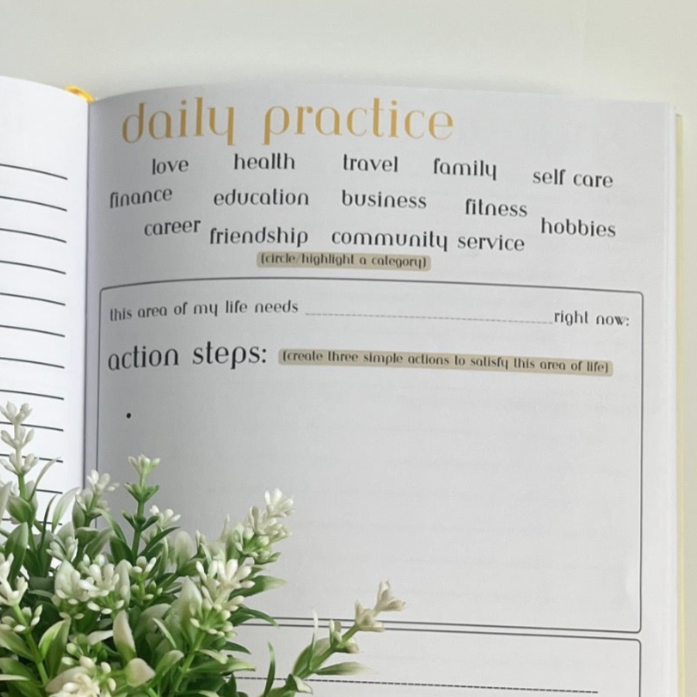 daily practice
love health travel family self care
finance education business fitness
career friendship community service hobbies
(circle/highlight a category)
this area of my life needs right now:
action steps: (create three simple actions to satisfy this area of life)